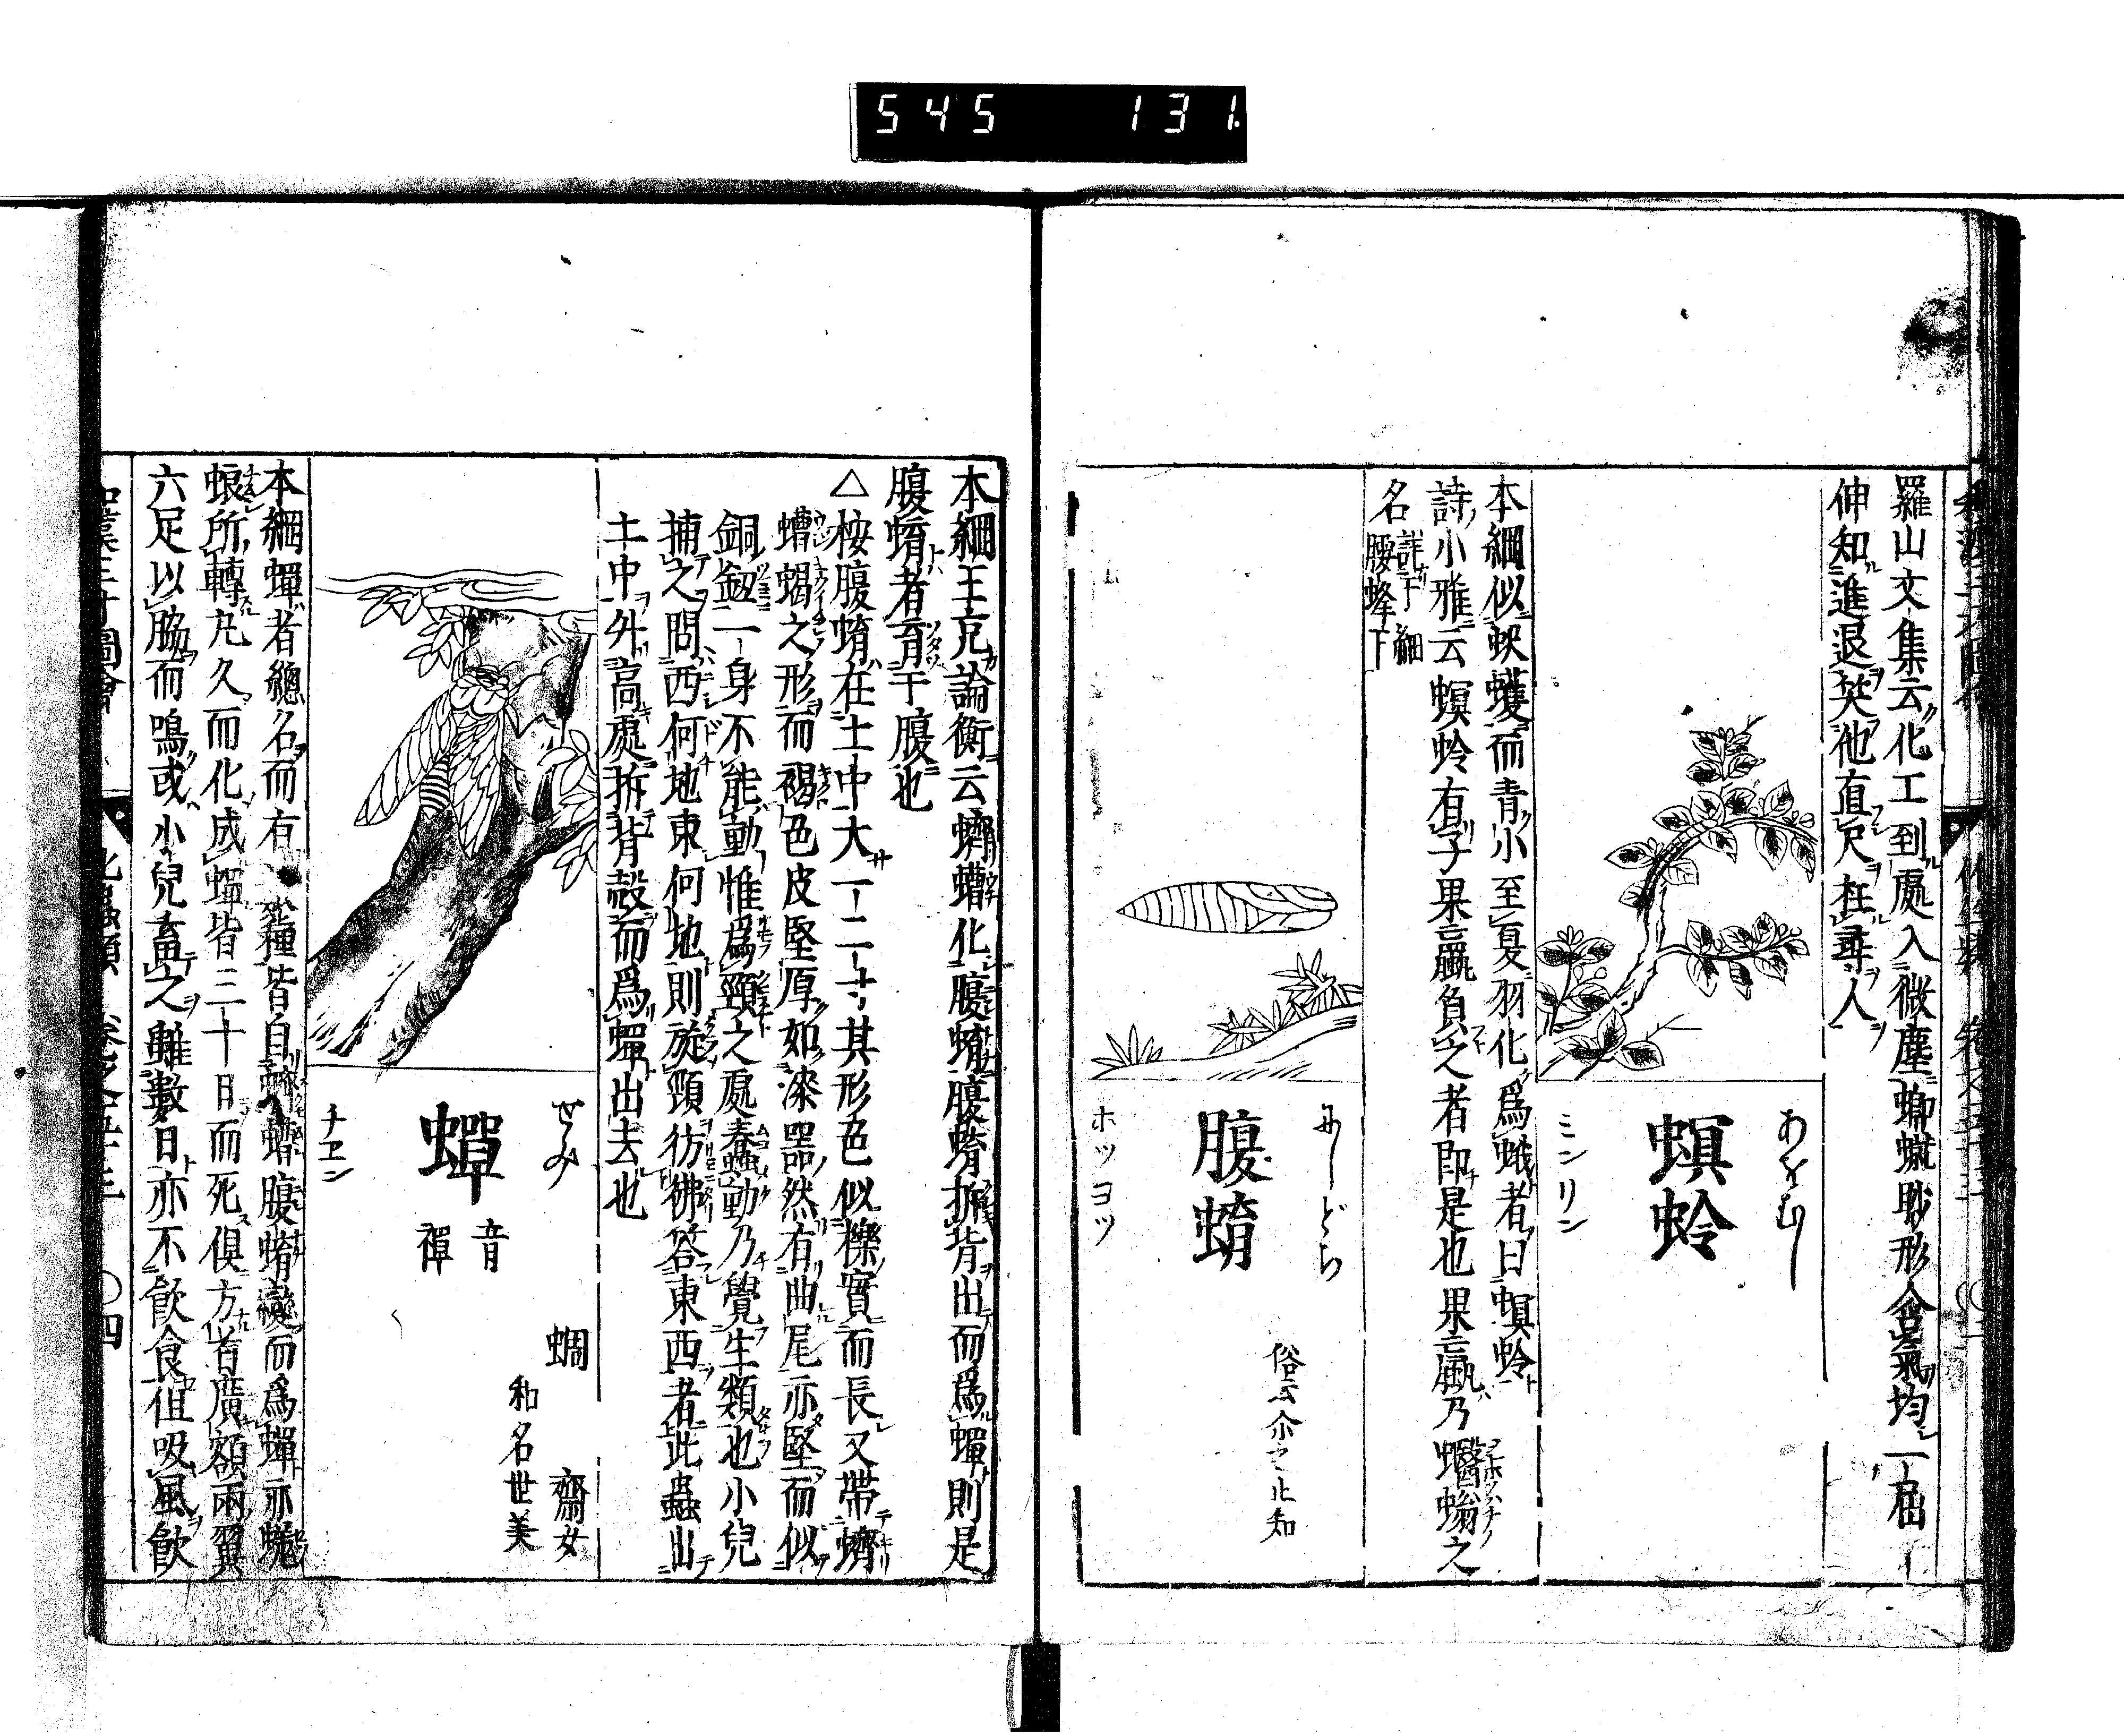 545 131
羅山文集云化工到處入微塵蚇蠖眇形含氣均一屈
伸知進退笑他直尺枉尋人
あをむし
螟蛉
ミンリン
本綱似蚇蠖而青小至夏羽化爲蛾者曰螟蛉
詩小雅云螟蛉有子果蠃負之者即是也果蠃乃蠮螉之
名詳于下細腰蜂下
にしどち
腹蜟
ホツヨツ
俗云尒之止知
本綱王充論衡云蠐螬化腹蜟腹蜟拆背出而爲蟬則是
腹蜟者育于腹也
△桉腹蜟在土中大一二寸其形色似櫟實而長又帶蠐
螬蝎之形而褐色皮堅厚如漆噐然有曲尾亦堅而似
銅釼一身不能動惟爲頸之處蠢動乃覺生類也小兒
捕之問西何地東何地則旋頸彷彿答東西者此蟲出
土中外高處拆背殼而爲蟬出去也
せみ
蟬
音禪
チエン
蜩
齋女
和名世美
本綱蟬者總名而有 種皆自蠐螬腹蜟變而爲蟬亦蜣
蜋所轉丸久而化成蟬皆三十日而死俱方首廣額兩翼
六足以脇而鳴或小兒畜之雖數日亦不飮食但吸風飮
和漢三才圖會
化蟲類 卷之五十二
〇四